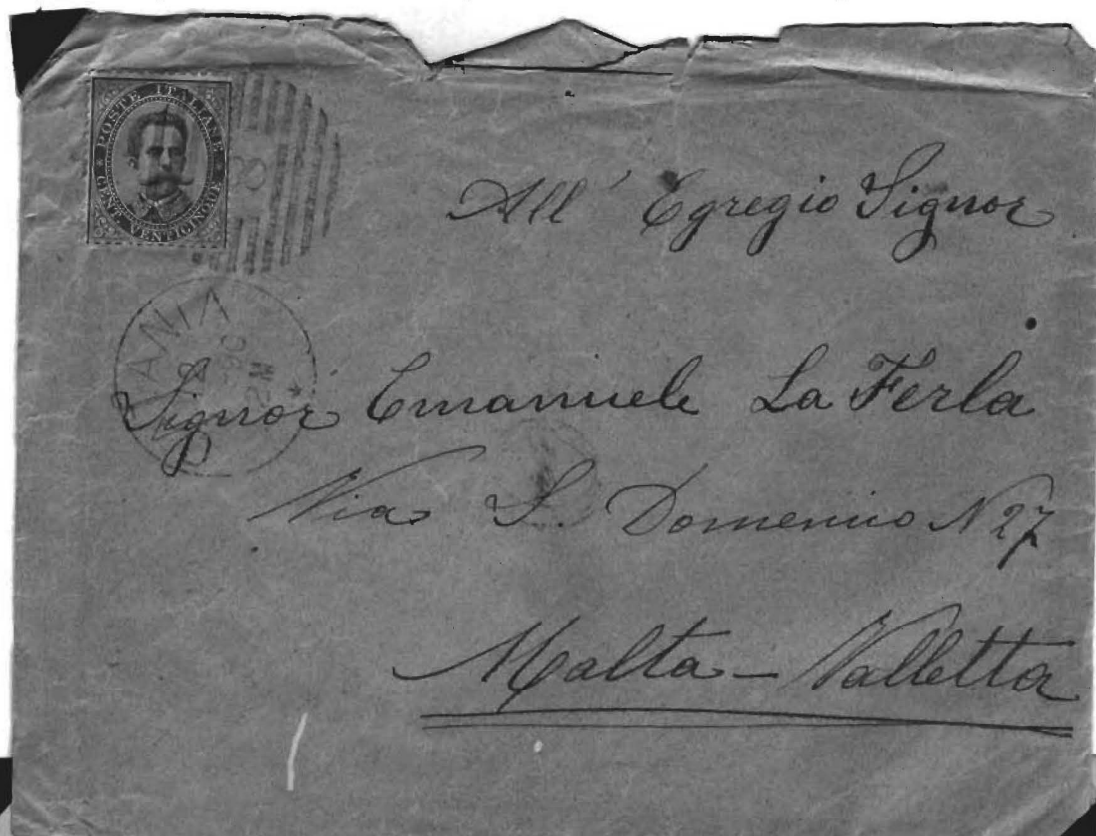 POSTE ITALIANE
CENT. VENTICINQUE
All' Egregio Signor
Signor Emanuele La Ferla
Via S. Domenico N 27
Malta - Valletta